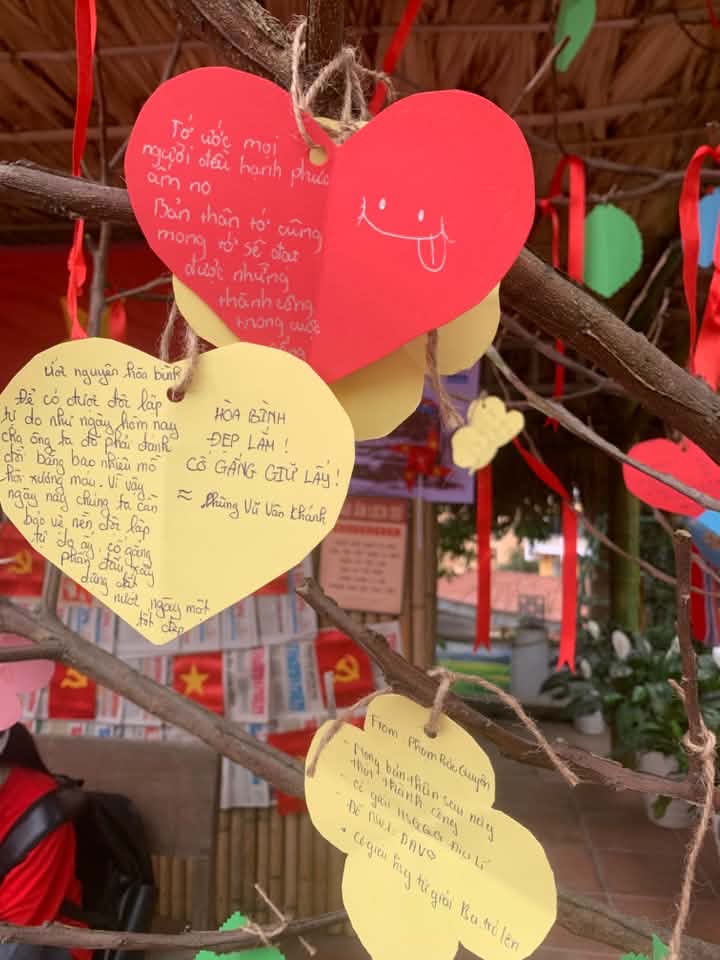 Tớ ước mọi
người đều hạnh phúc
ấm no
Bản thân tớ cũng
mong tớ sẽ đạt
được những
thành công
trong cuộc
sống
Ước nguyện hòa bình
Để có được độc lập
tự do như ngày hôm nay
cha ông ta đã phải đánh
đổi bằng bao nhiêu mồ
hôi xương máu. Vì vậy
ngày nay chúng ta cần
bảo vệ nền độc lập
tự do ấy, cố gắng
phấn đấu xây
dựng đất
nước ngày một
tốt đẹp
HÒA BÌNH
ĐẸP LẮM !
CỐ GẮNG GIỮ LẤY !
≈ Phùng Vũ Vân Khánh
From Phạm Bảo Quyên
- Mong bản thân sau này
thật thành công
- Có giải HSG
- Đỗ
• Có giải hsg từ giải Ba trở lên